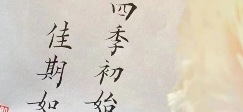 四季初始
佳期如